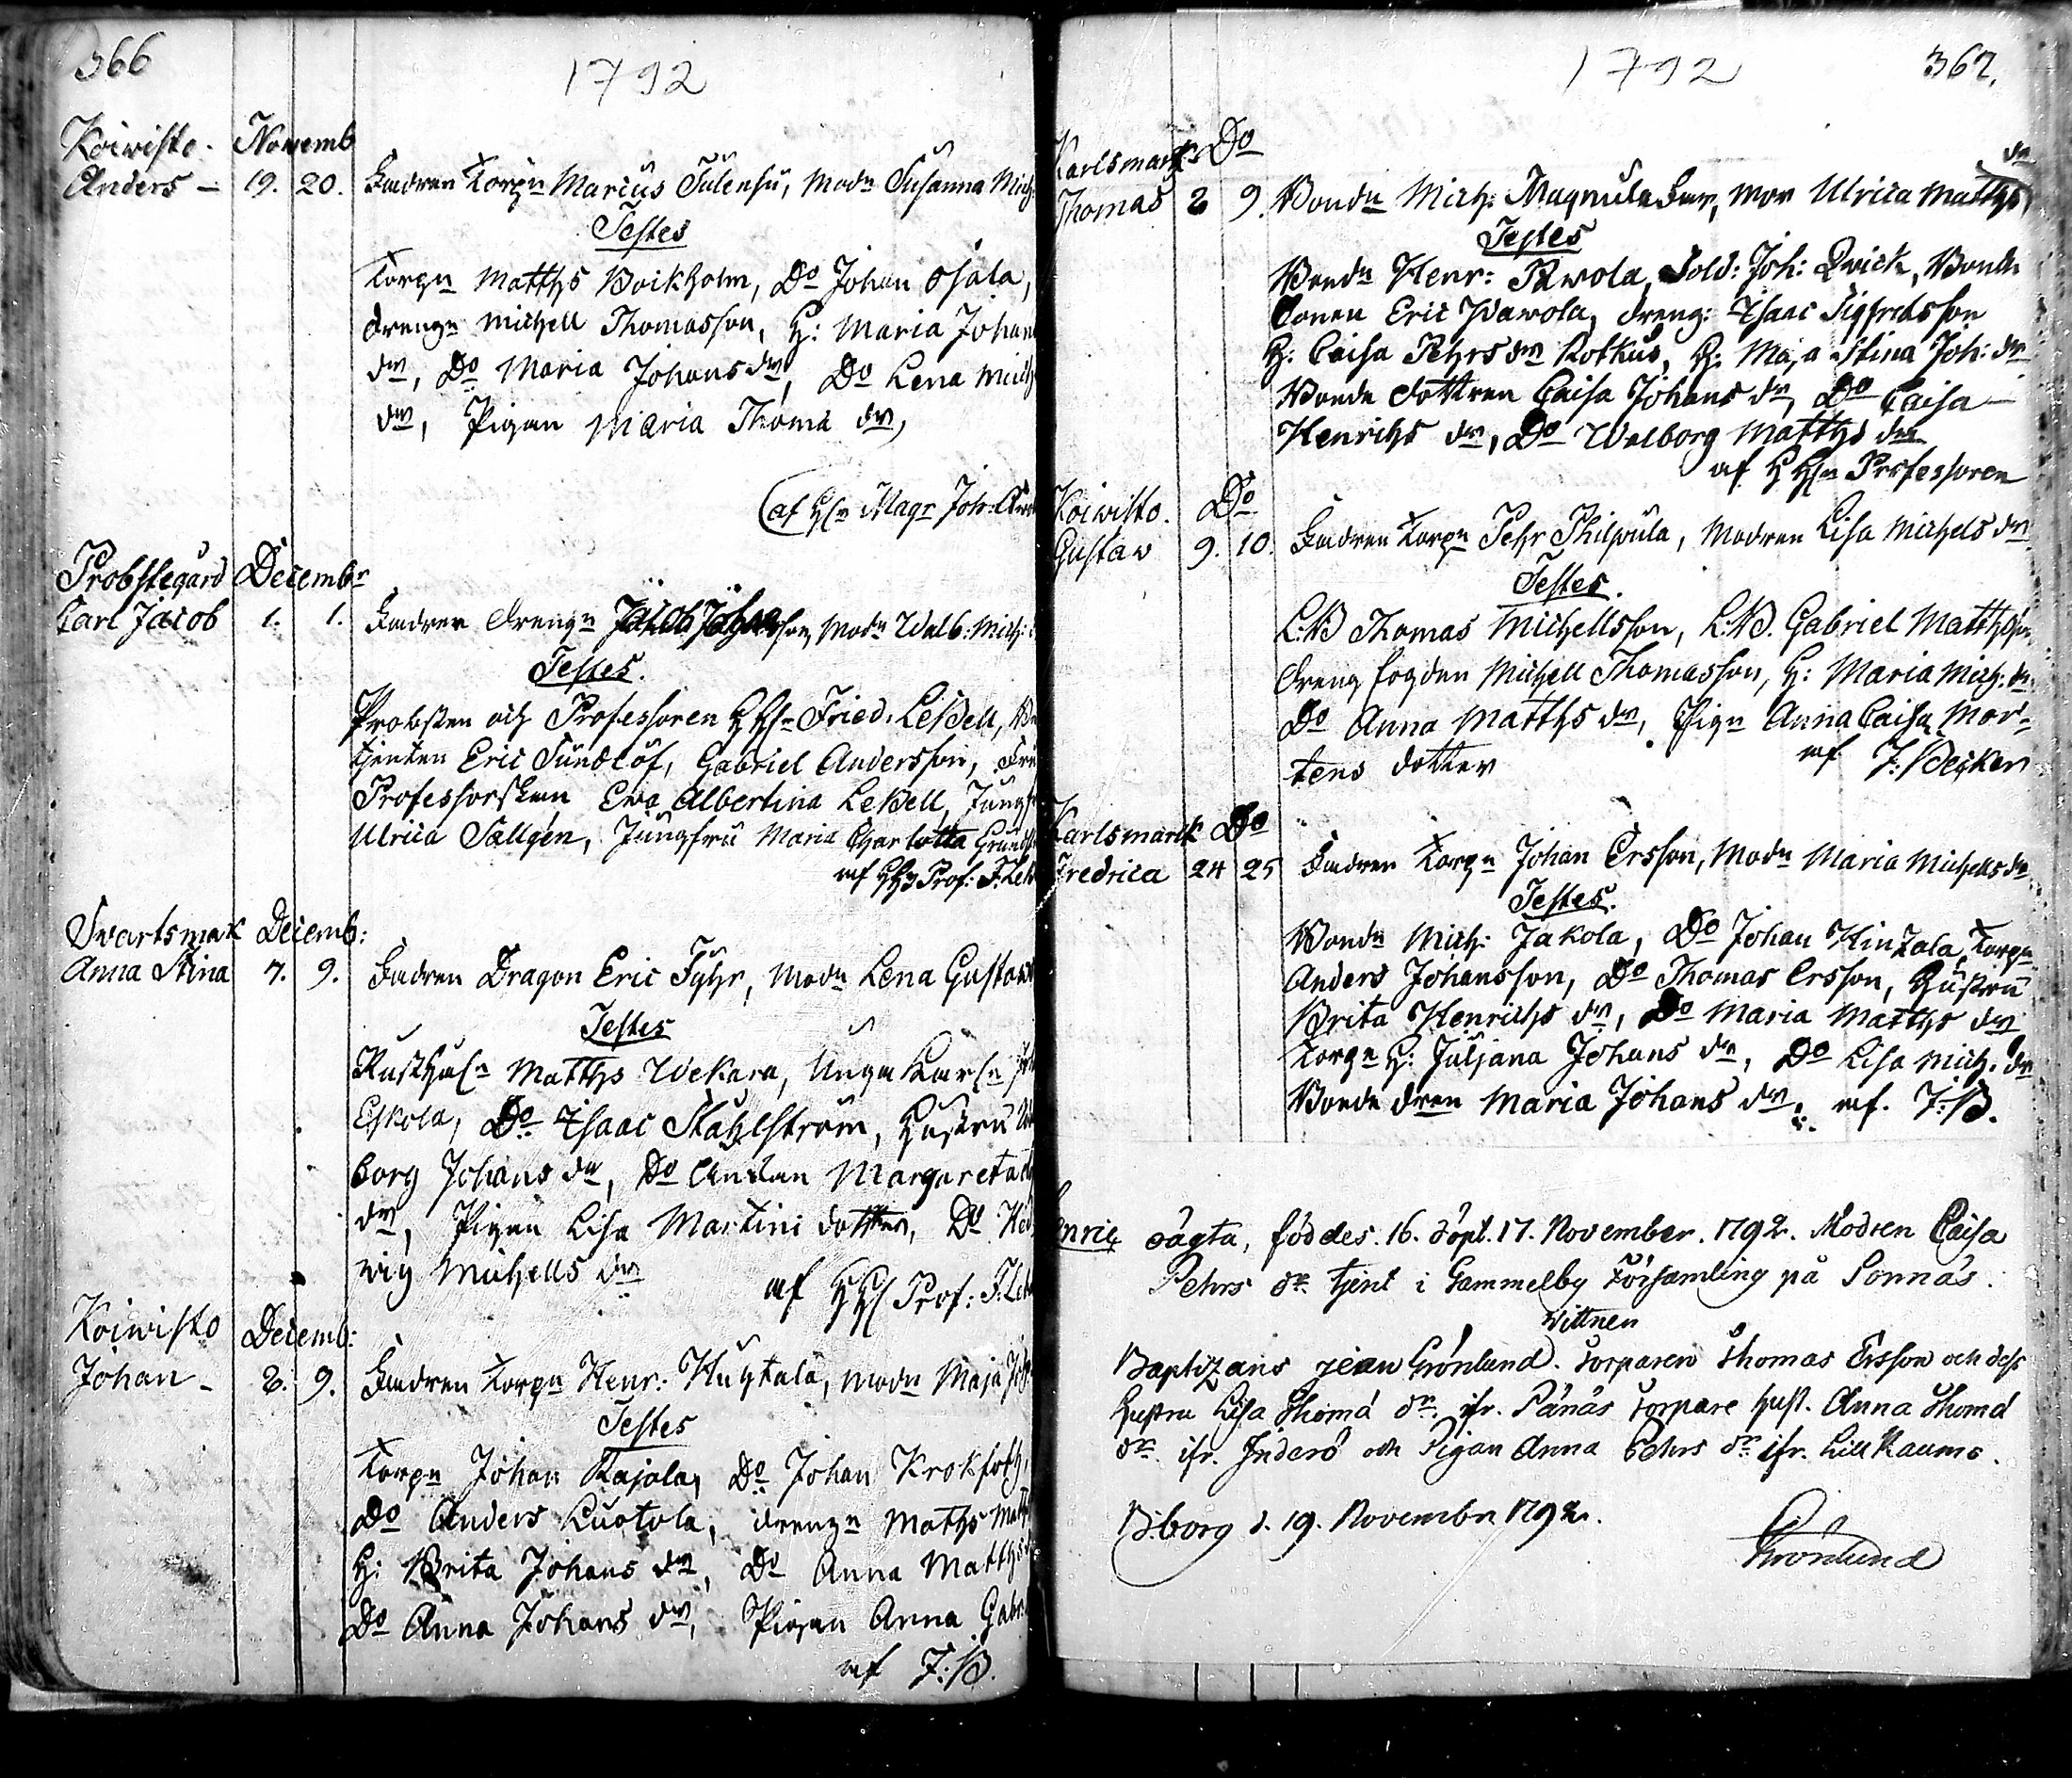 366
1792
Koiwisto. Novemb
Anders — 19. 20. Fadren Torpn Marcus Sulensu, Modn Susanna Mich
Testes
Torpn Matths Boikholm, Do Johan Ojala,
drengn Michell Thomasson, H: Maria Johans
dr, Do Maria Johans dr, Do Lena Mich
dr, Pigan Maria Thoma dr,
(af Hln Magr Joh:
Probstegård Decembr
Carl Jacob 1. 1. Fadren drengn Jacob Johansson, Modn Walb: Mich:
Testes.
Probsten och Professoren HHln Fried. Leßell,
tjenten Eric Sundlöf, Gabriel Andersson, Fru
Professorskan Ewa Albertina Leßell, Jungfr
Ulrica Sallgén, Jungfru Maria Charlotta
af HH Prof: F. Leß
Swartsmark Decemb:
Anna Stina 7. 9. Fadren Dragon Eric Fyhr, Modn Lena Gustavs
Testes
Rusthåln Matths Wekara, Unga Karln
Eskola, Do Isaac Stahlström, Hustru
borg Johans dr, Do Margareta
dr, Pigan Lisa Martini dotter, Do Hed
wig Michells dr af HHl Prof: F. Leß
Koiwisto Decemb:
Johan — 8. 9. Fadren Torpn Henr: Huhtala, Modn Maja
Testes
Torpn Johan Rajala, Do Johan Krokfoth,
Do Anders Luotola, drengn Maths Matt
H: Brita Johans dr, Do Anna Matths
Do Anna Johans dr, Pigan Anna Gabr
af J:B.
1792
367.
Karlsmark Do
Thomas 8 9. Bondn Mich: Magnula Far, Mor Ulrica Matths dr
Testes
Bondn Henr: Rawola, Sold: Joh: Qvick, Bonde
Sonen Eric Wawola, dreng: Isaac Sigfredsson
H: Caisa Pehrs dr Kotkus, H: Maja Stina Joh: dr
Bonde dottren Caisa Johans dr, Do Caisa —
Henrichs dr, Do Walborg Matths dr
af HHln Professoren
Koiwisto. Do
Gustaw 9. 10. Fadren Torpn Pehr Philpula, Modren Lisa Michels dr
Testes.
L:B Thomas Michellsson, L:B. Gabriel Matthsson
Dreng fogden Michell Thomasson, H: Maria Mich: dr
Do Anna Matths dr, Pign Anna Caisa Mor-
tens dotter af J: Becker
Karlsmark Do
Fredrica 24 25 Fadren Torpn Johan Ersson, Modn Maria Michells dr
Testes.
Bondn Mich: Jakola, Do Johan Hintala, Torpn
Anders Johansson, Do Thomas Ersson, Hustru
Brita Henrichs dr, Do Maria Matths dr
Torpn H: Juljana Johans dr, Do Lisa Mich. dr
Bonde dren Maria Johans dr: af. J:B.
oägta, föddes. 16. döpt. 17. November. 1792. Modren Caisa
Pehrs dr. tjent i Gammelby Församling på Sonnäs.
Wittnen
Baptizans Jean Grönlund. Torparen Thomas Ersson och dess
hustru Lisa Thomá dr. ifr. Pänäs Torpare hust. Anna Thomá
dr. ifr. Inderö och Pigan Anna Pehrs dr ifr. Lill Raumo.
Biborg d. 19. Novembr 1792.
Grönlund